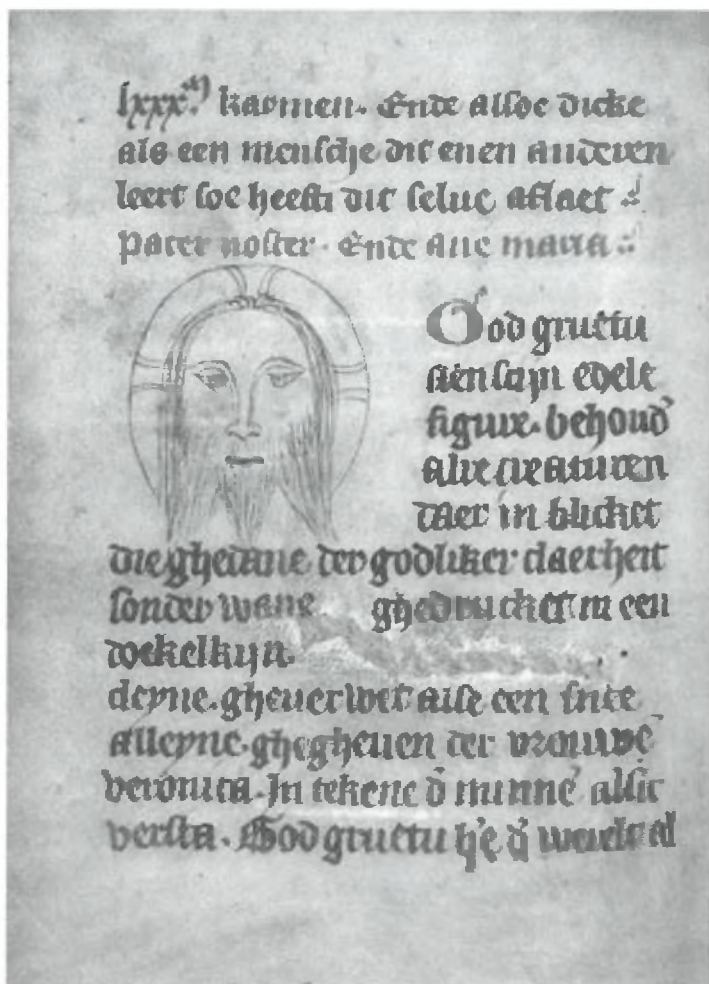 lxxx. karinen. Ende alsoe dicke
als een mensche dit enen anderen
leert soe heefti dit selue aflaet
pater noster. Ende aue maria
God gruetu
sien edele
figure. behoud
alre creaturen
daer in blicket
die ghedane der godliker claerheit
sonder wane ghedrucket in een
doekelkijn.
cleyne. gheuerwet alse een snee
alleyne. ghegheuen der vrouwē
veronica. In tekene d̄ minnē alsic
versta. God gruetu h'e d̄ werelt al